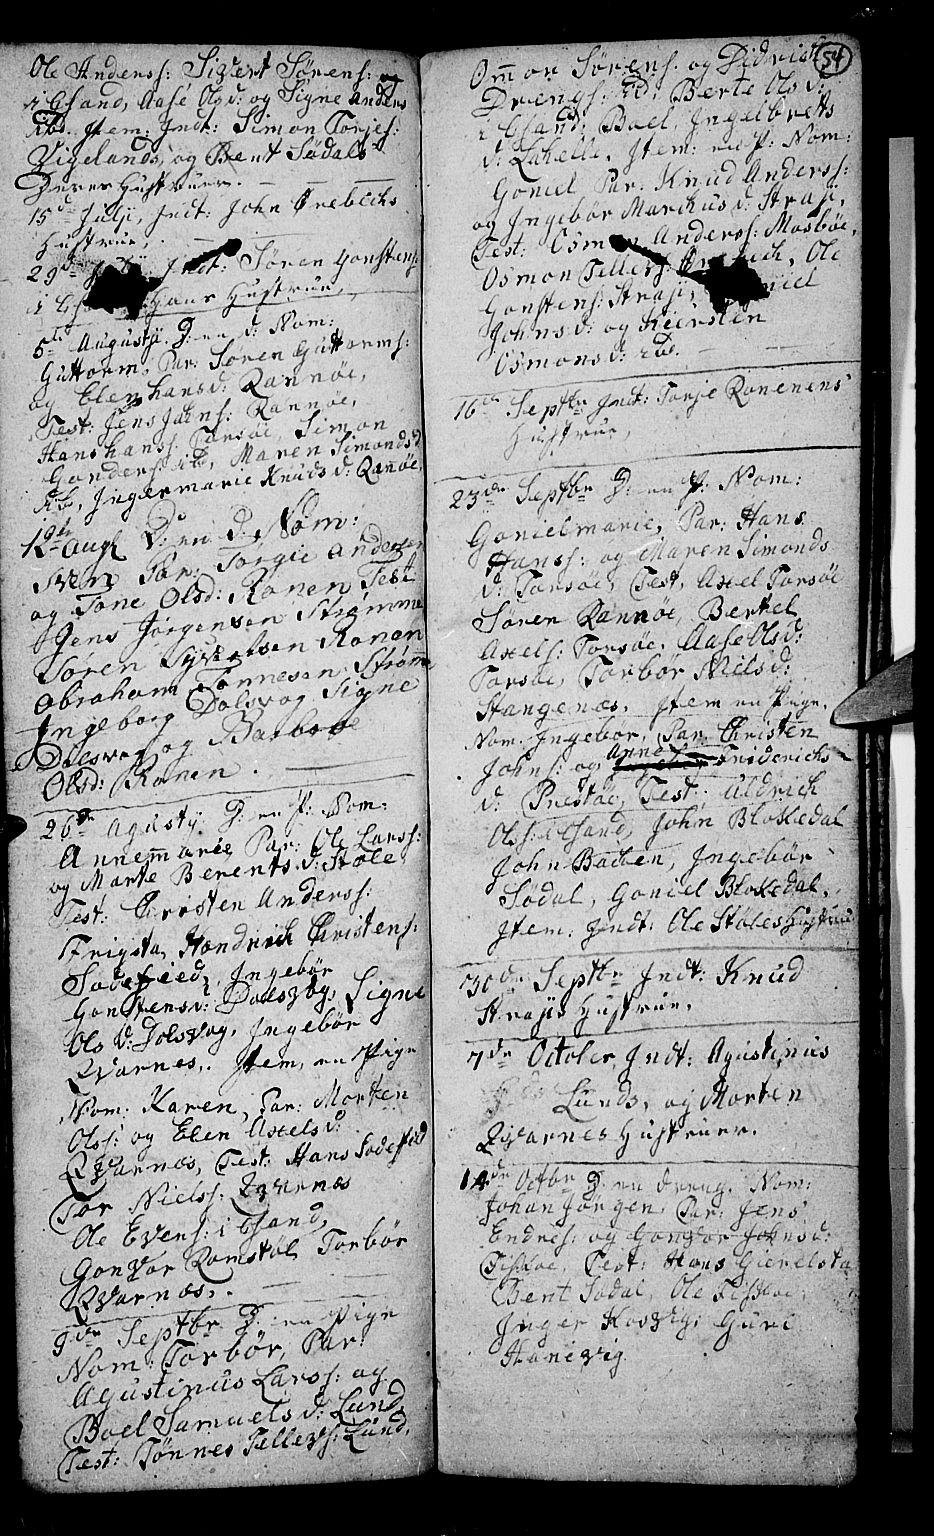 Ole Anderss: Sivert Sørens: og
i Chsand, Aase Olsd: og Signe Anders
ibd. Item: Indt: Simon Torjes:
Vigelands, og Bent Sødals
Deres Hustruer.
15de Julji, Indt: John Ørebechs
Hustrue,
29de Indt: Søren Gonstens:
i Hans Hustrue,
5te Augustij. D: en d: Nom:
Guttorm, Par: Søren Guttorms:
og Elen Hansd: Rannøe,
Test: Jens Jahns: Rannøe,
Hans Hanss: Torsøe, Simon
Gunders: ibd, Maren Simonds d
ibd, Ingermarie Knuds d: Ranøe,
19de Aug D: en d: Nom:
Sven Par: Torgie Andersen
og Tone Olsd: Ronen Test
Jens Jørgensen Strømme
Soren Syvertsen Ronen
Abraham Tønnesen Strømme
Ingeborg Dolsvog Signe
Dolsvog og Barbroe
Olsd: Ronen.
26de Agustij. D: en P: Nom:
Annemarie Par: Ole Larss:
og Marte Berents d: Støle
Test: Christen Anderss:
Frigsta, Hendrich Christens:
Sødefied, Ingebør
Gonstensd: Dolsvog, Signe
Ols d: Dolsvog, Ingebør
Qvarnes,. Item, en Pige
Nom: Karen, Par: Morten
Olss: og Elen Axelsd:
Qvarnæs, Test: Hans Sødefied
Tor Nielss: Qvarnæs
Ole Evens: i Chsand,
Gonvor Romstøl Torbør
Qvarnæs,.
9de Septbr D: en Pige
Nom: Torbør, Par:
Agustinus Larss: og
Boel Samuels d: Lund,
Test: Tønnes Tellefss: Lund,
54
Ommon Sørens. og Didrich
Drengs: ibd: Berte Ols d:
i Chsand: Boel, Ingelbrets
d: Lahelle. Item: en P: Nom:
Goniel Par: Knud Anderss:
og Ingebør Marchus d: Straji,
Test: Osmon Anderss: Mosbøe,
Osmon Tellefs: Ørebech, Ole
Gonstens: Straji,
Johns d: og Kiersten
Osmons d: ibd.
16de Septbr Indt: Torje Ronenens
Hustrue,
23de Septbr D: en P: Nom:
Gonielmarie, Par: Hans
Hanss: og Maren Simonds
d: Torsøe, Test, Axel Torsøe
Søren Rannøe, Bertel
Axels: Torsøe, Aase Ols d:
Torsøe, Torbor Niels d:
Stangenæs, Item en Pige,
Nom: Ingebør, Par: Christen
Johns: og Anne Friderichs
d: Prestøe, Test: Uldrich
Olss: i Chsand, John Blokkedal
John Bachen, Ingebør
Sødal, Goniel Blokkedal.
Item: Indt: Ole Støles Hustrue
30de Septbr Indt: Knud
Strajis Hustrue.
7de Octobr, Indt: Agustinus
Lunds, og Morten
Qvarnes Hustruer.
14de Octbr D: en dreng. Nom:
Johan Jørgen, Par: Jens
Endres: og Gonvor Johns d:
Fiskøe, Test: Hans Gierelsta
Bent Sødal, Ole Fiskøe,
Inger Kosvig, Guri
Hanevig.